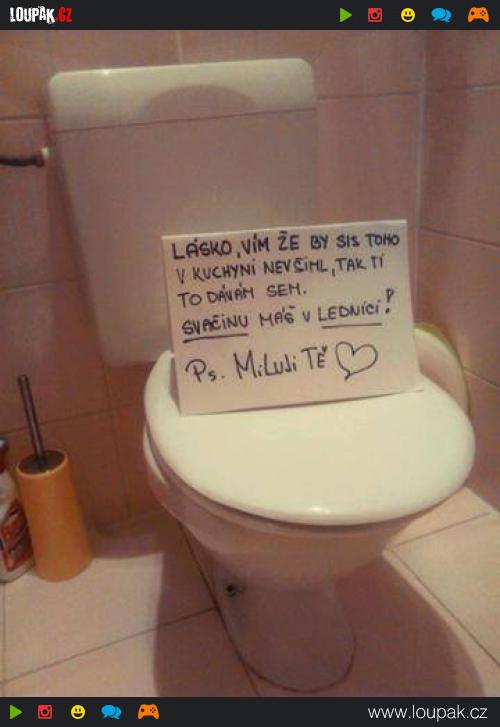 LOUPAK.CZ
LÁSKO, VÍM ŽE BY SIS TOHO
V KUCHYNI NEVŠIML, TAK TI
TO DÁVÁM SEM.
SVAČINU MÁŠ V LEDNICI!
Ps. MiLUJi TĚ
www.loupak.cz